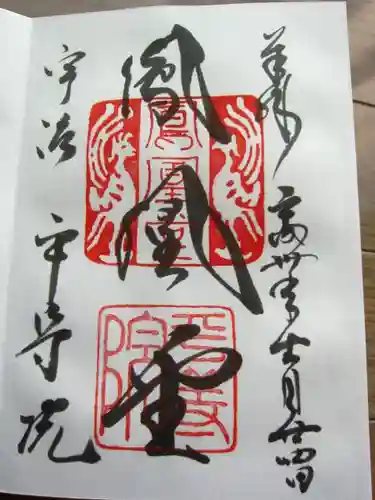 奉拝
平成廿九年十一月廿四日
鳳凰堂
鳳凰堂
平等院
宇治 平等院